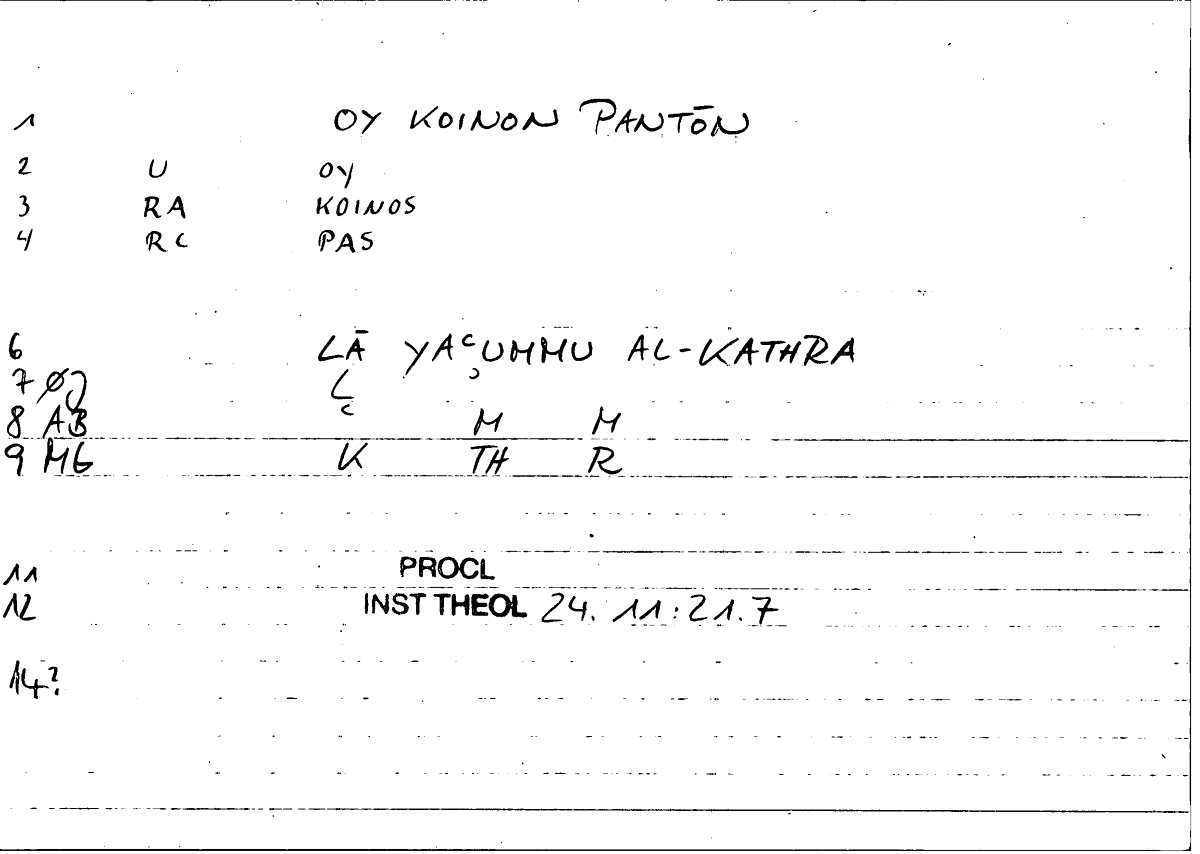 1 OY KOINON PANTŌN
2 U OY
3 RA KOINOS
4 RC PAS
6 LĀ YAʿUMMU AL-KATHRA
7 ØJ L
8 AB ʿ M M
9 MG K TH R
11 PROCL
12 INST THEOL 24. 11:21.7
14?